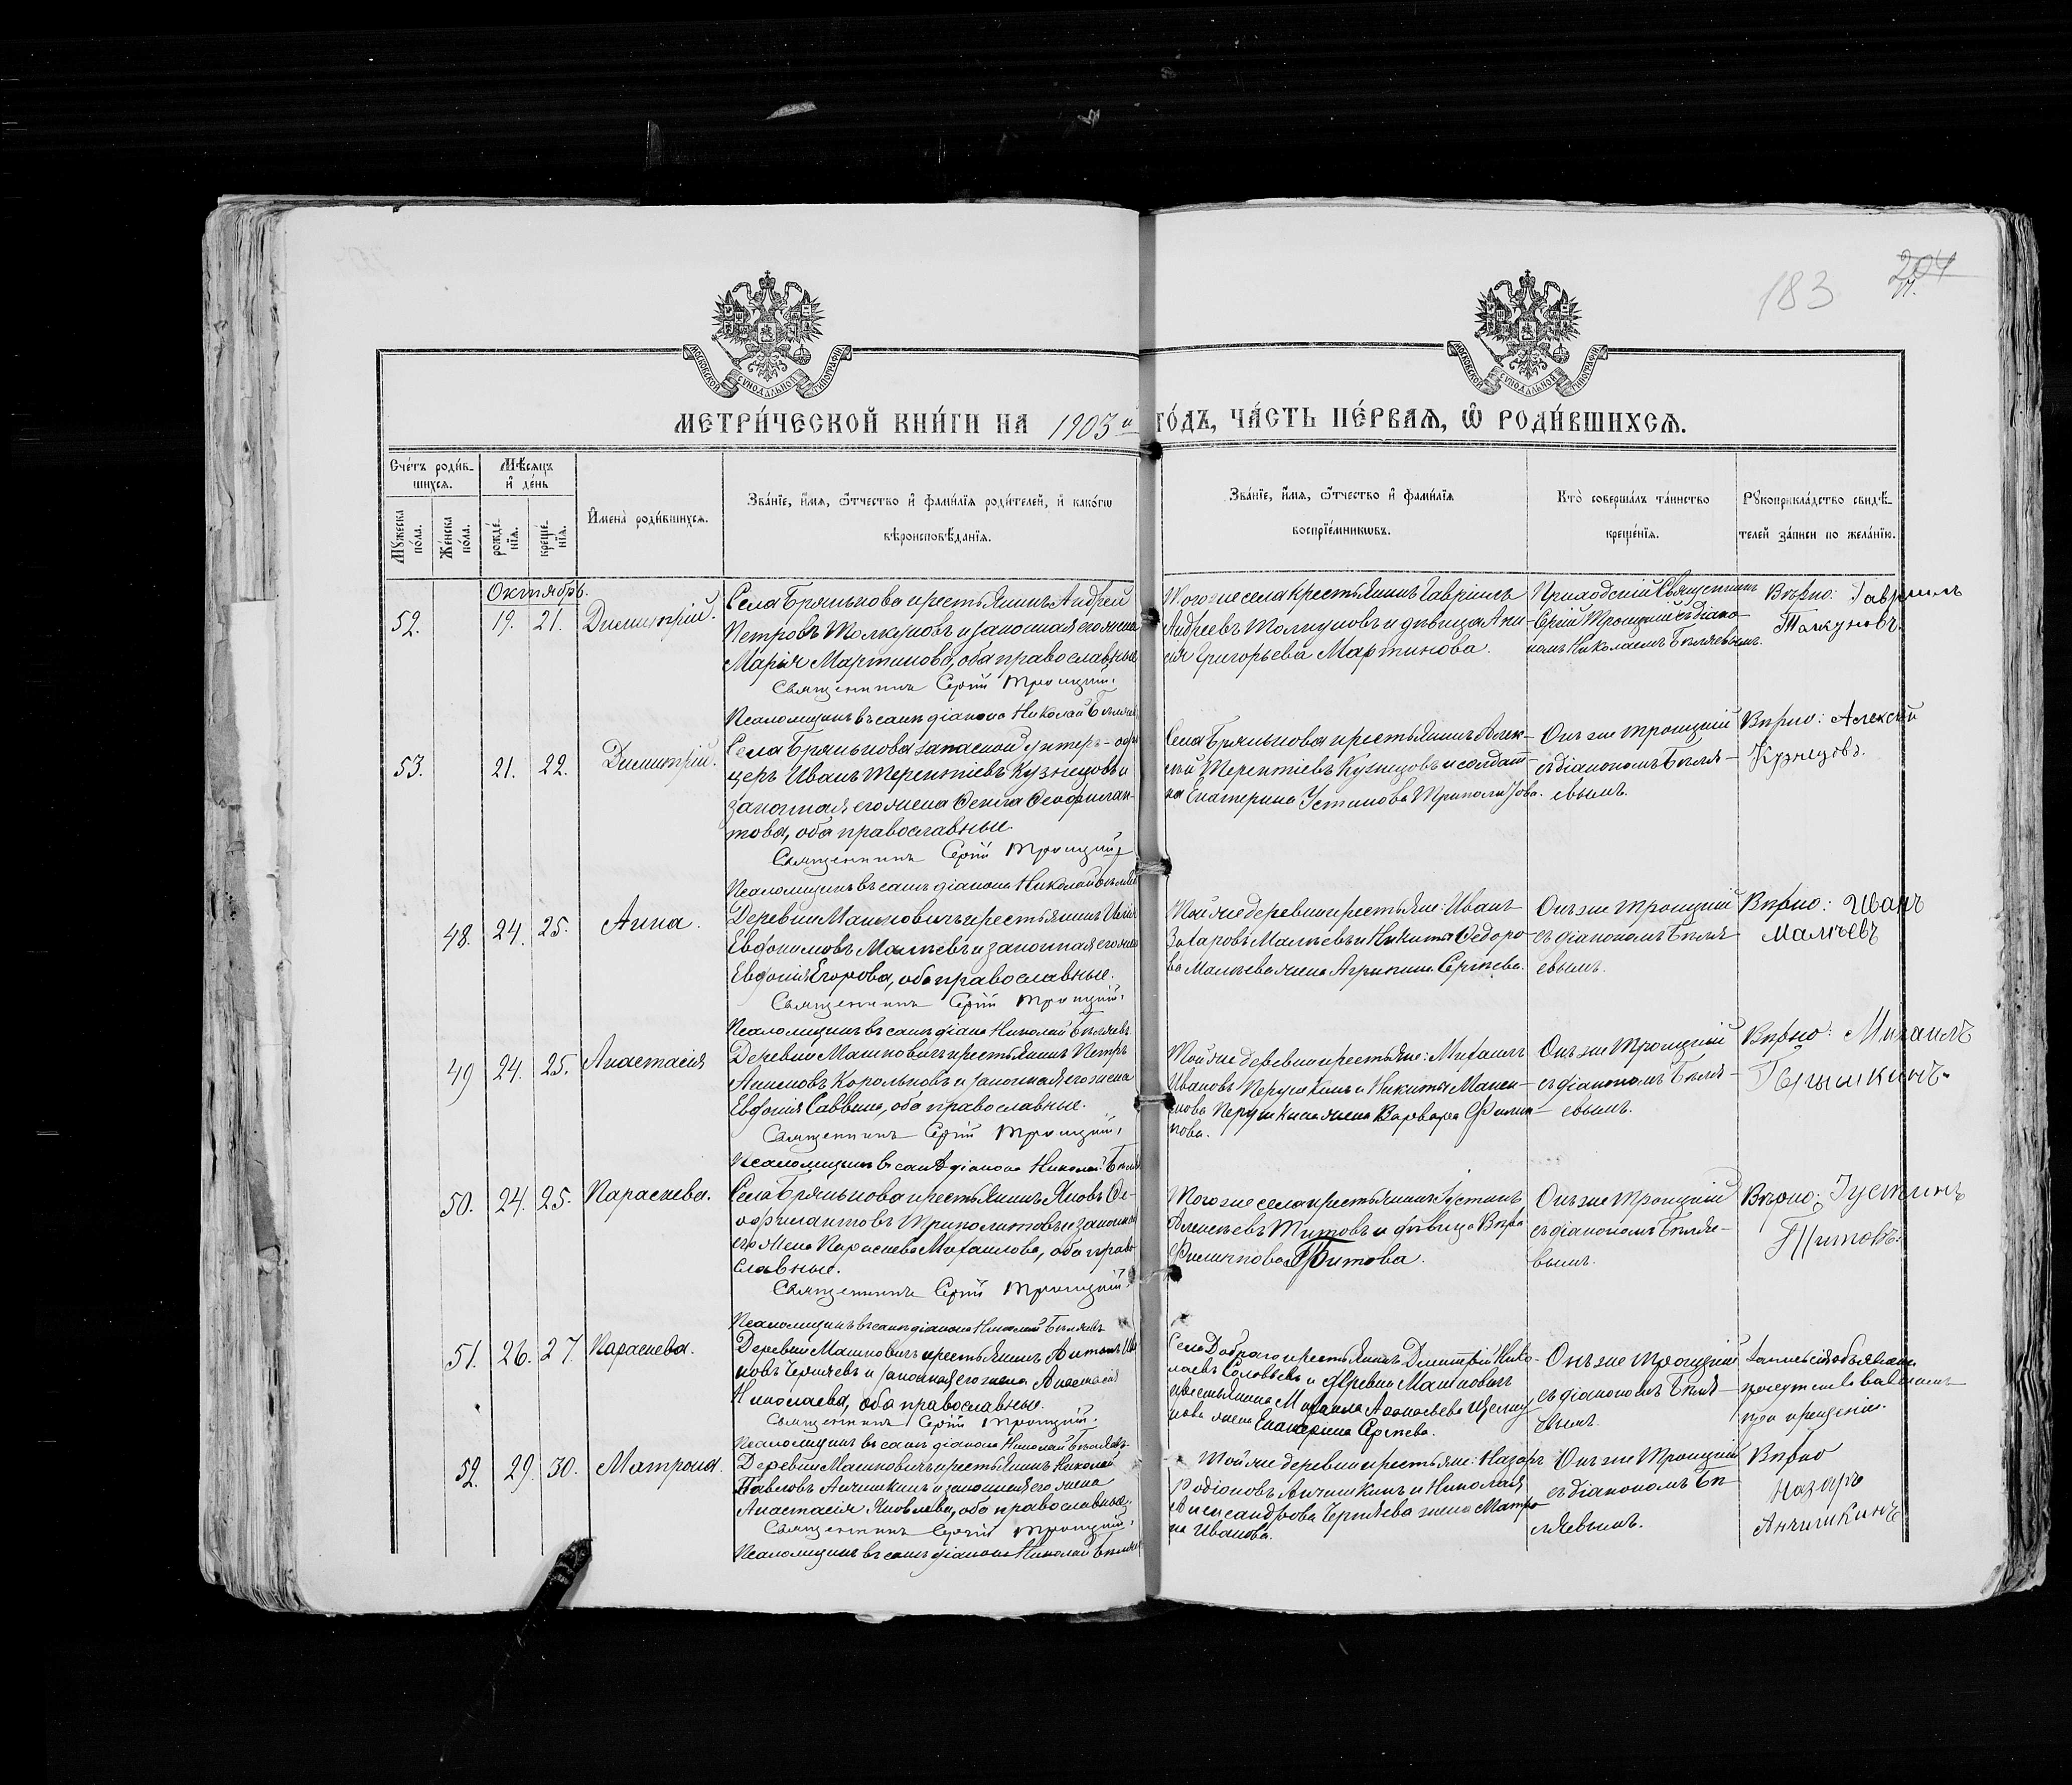 183
204
МОСКОВСКОЙ СѴНОДАЛЬНОЙ ТИПОГРАФІИ
МОСКОВСКОЙ СѴНОДАЛЬНОЙ ТИПОГРАФІИ
МЕТРИ́ЧЕСКОЙ КНИ́ГИ НА 1903й ГО́ДЪ, ЧА́СТЬ ПЕ́РВАѦ, Ѡ҆ РОДИ́ВШИХСѦ.
Сче́тъ роди́в-
шихсѧ.
Мѣ́сѧцъ
и҆ де́нь
Мꙋ́жеска по́ла.
Же́нска по́ла.
рожде́-нїѧ.
креще́-нїѧ.
И҆мена̀ роди́вшихсѧ.
Зва́нїе, и҆́мѧ, ѻ҆́тчество и҆ фами́лїѧ роди́телей, и҆ како́гѡ
вѣроисповѣ́данїѧ.
Зва́нїе, и҆́мѧ, ѻ҆́тчество и҆ фами́лїѧ
воспрїе́мникѡвъ.
Кто̀ соверша́лъ та́инство
креще́нїѧ.
Рꙋкоприкла́дство свидѣ́-
телей за́писи по жела́нїю.
Октябрь.
52. 19. 21. Димитрій.
Села Брянькова крестьянинъ Андрей
Петровъ Толкуновъ и законная его жена
Марія Мартинова, оба православные
Священникъ Сергій Троицкій.
Псаломщикъ въ санѣ діакона Николай Бѣляевъ
Того же села крестьянинъ Гавріилъ
Андреевъ Толкуновъ и дѣвица Ани-
сія Григорьева Мартинова.
Приходскій Священникъ
Сергій Троицкій съ діако-
номъ Николаемъ Бѣляевымъ.
Вѣрно: Гавриилъ
Толкуновъ.
53. 21. 22. Димитрій.
Села Брянькова запасной унтеръ-офи
церъ Иванъ Терентіевъ Кузнецовъ и
законная его жена Ѳекла Ѳеофилак-
това, оба православные.
Священникъ Сергій Троицкій
Псаломщикъ въ санѣ діакона Николай Бѣляевъ
Села Брянькова крестьянинъ Алек-
сѣй Терентіевъ Кузнецовъ и солдат-
ка Екатерина Устинова Триполитова.
Онъ же Троицкій
съ діакономъ Бѣля-
евымъ.
Вѣрно: Алексѣй
Кузнецовъ.
48. 24. 25. Анна.
Деревни Машковичъ крестьянинъ Илія
Евдокимовъ Малѣевъ и законная его жена
Евдокія Егорова, оба православные.
Священникъ Сергій Троицкій.
Псаломщикъ въ санѣ діакона Николай Бѣляевъ.
Той же деревни крестьяне: Иванъ
Захаровъ Малѣевъ и Никита Ѳедоро-
ва Малѣева жена Агрипина Сергѣева.
Онъ же Троицкій
съ діакономъ Бѣля-
евымъ.
Вѣрно: Иванъ
Малѣевъ
49 24. 25. Анастасія
Деревни Машковичъ крестьянинъ Петръ
Акимовъ Корольковъ и законная его жена
Евдокія Саввина, оба православные.
Священникъ Сергій Троицкій.
Псаломщикъ въ санѣ діакона Николай Бѣляевъ
Той же деревни крестьяне: Михаилъ
Ивановъ и Никиты
жена Варвара Филип-
пова.
Онъ же Троицкій
съ діакономъ Бѣля-
евымъ.
Вѣрно: Михаилъ
50. 24. 25. Параскева.
Села Брянькова крестьянинъ Яковъ Ѳе-
офилактовъ Триполитовъ и законная
его жена Параскева Михаилова, оба право-
славные.
Священникъ Сергій Троицкій.
Псаломщикъ въ санѣ діакона Николай Бѣляевъ
Того же села крестьянинъ Іустинъ
Алексѣевъ Титовъ и дѣвица Вѣра
Филиппова Титова.
Онъ же Троицкій
съ діакономъ Бѣляе-
вымъ.
Вѣрно: Іустинъ
Титовъ.
51. 26. 27. Параскева.
Деревни Машковичъ крестьянинъ Антонъ Ива
новъ Черняевъ и законная его жена Анастасія
Николаева, оба православные.
Священникъ Сергій Троицкій.
Псаломщикъ въ санѣ діакона Николай Бѣляевъ
Села Добраго крестьянинъ Димитрій Нико-
лаевъ Соловьевъ и деревни Машковичъ
крестьянина Михаила
жена Екатерина Сергѣева.
Онъ же Троицкій
съ діакономъ Бѣля-
евымъ.
Запись сія объявлена
при крещеніи.
52. 29. 30. Матрона.
Деревни Машковичъ крестьянинъ Николай
Павловъ Анчишкинъ и законная его жена
Анастасія Яковлева, оба православные.
Священникъ Сергій Троицкій.
Псаломщикъ въ санѣ діакона Николай Бѣляевъ
Той же деревни крестьяне: Назаръ
Родіоновъ Анчишкинъ и Николая
Александрова Черняева жена Матро-
на Иванова.
Онъ же Троицкій
съ діакономъ Бѣ-
ляевымъ.
Вѣрно
Назаръ
Анчишкинъ